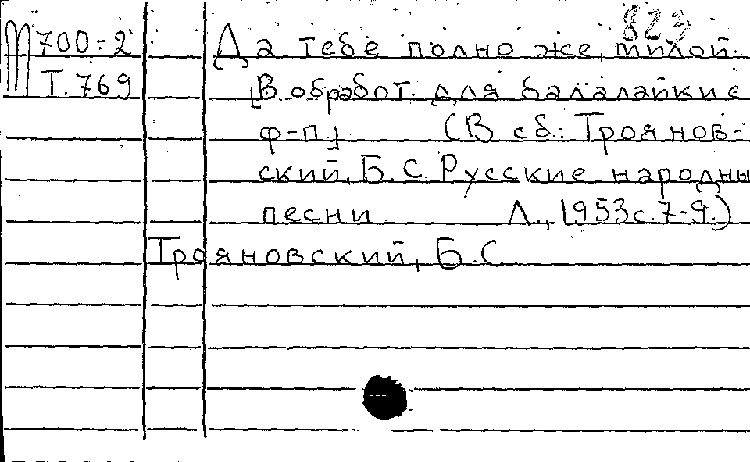 823
М700-2 Да тебе полно же, милой.
Т.769 [В обработ. для балалайки с
ф-п.] (В сб.: Троянов-
ский, Б.С. Русские народны
песни Л., 1953 с.7-9.)
Трояновский, Б.С